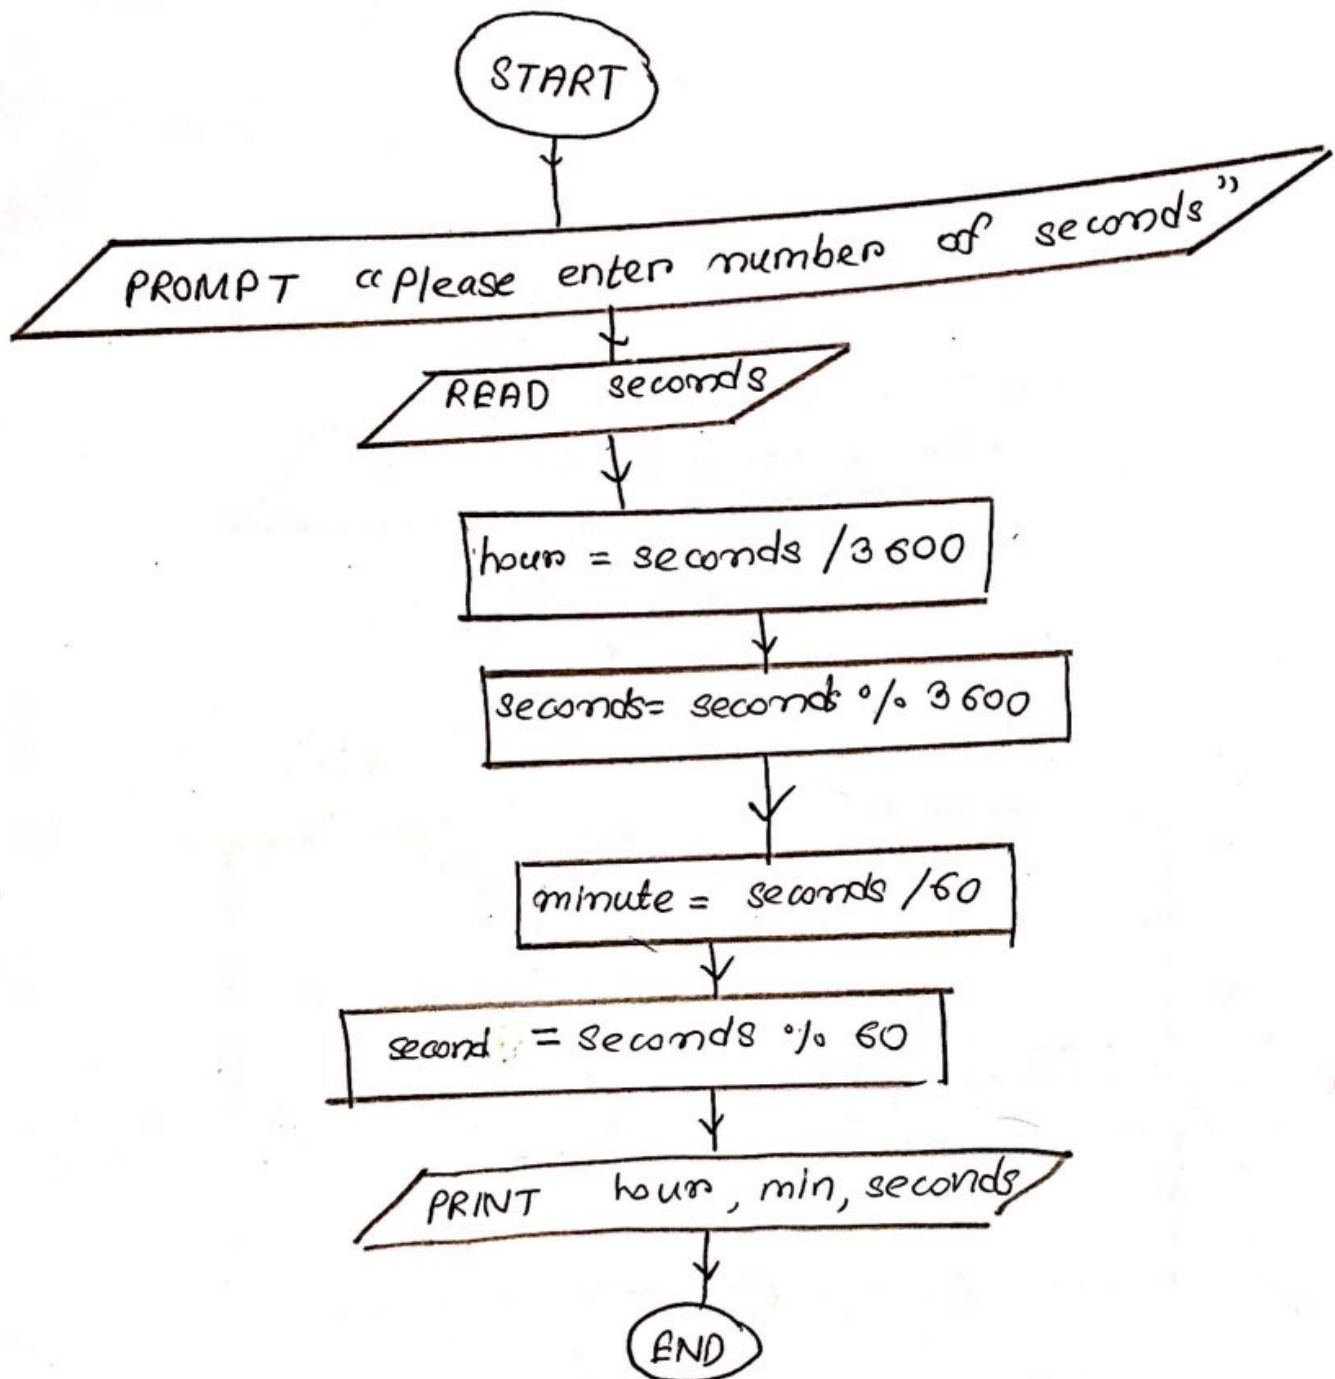 START
PROMPT "Please enter number of seconds"
READ seconds
hour = seconds /3600
seconds= seconds % 3600
minute = seconds /60
second = seconds % 60
PRINT hour, min, seconds
END